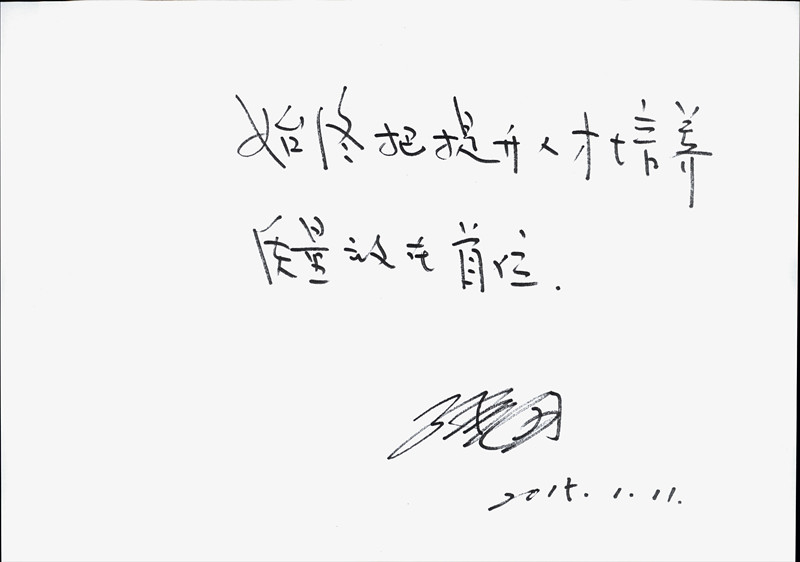 始终把提升人才培养
质量放在首位.
2015.1.11.